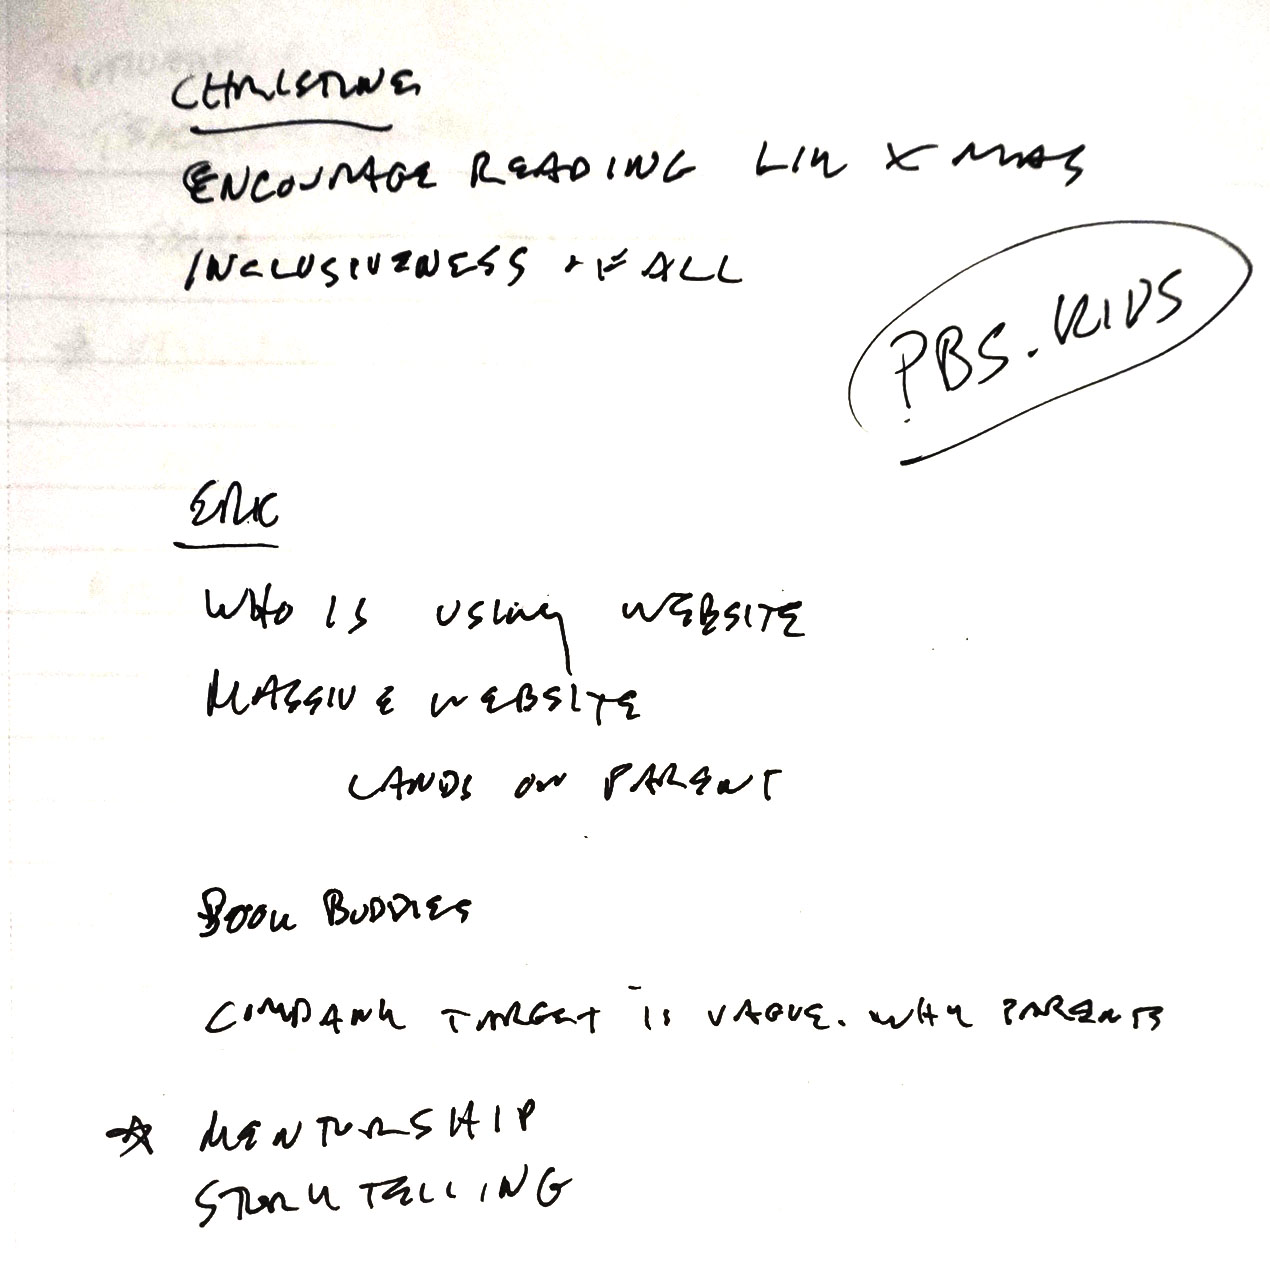 CHRISTINE
ENCOURAGE READING LIK XMAS
INCLUSIVENESS + F ALL
PBS.KIDS
ERIC
WHO IS USING WEBSITE
MASSIVE WEBSITE
LANDS ON PARENT
BOOK BUDDIES
COMPANY TARGET IS VAGUE. WHY PARENTS
MENTORSHIP
STORYTELLING